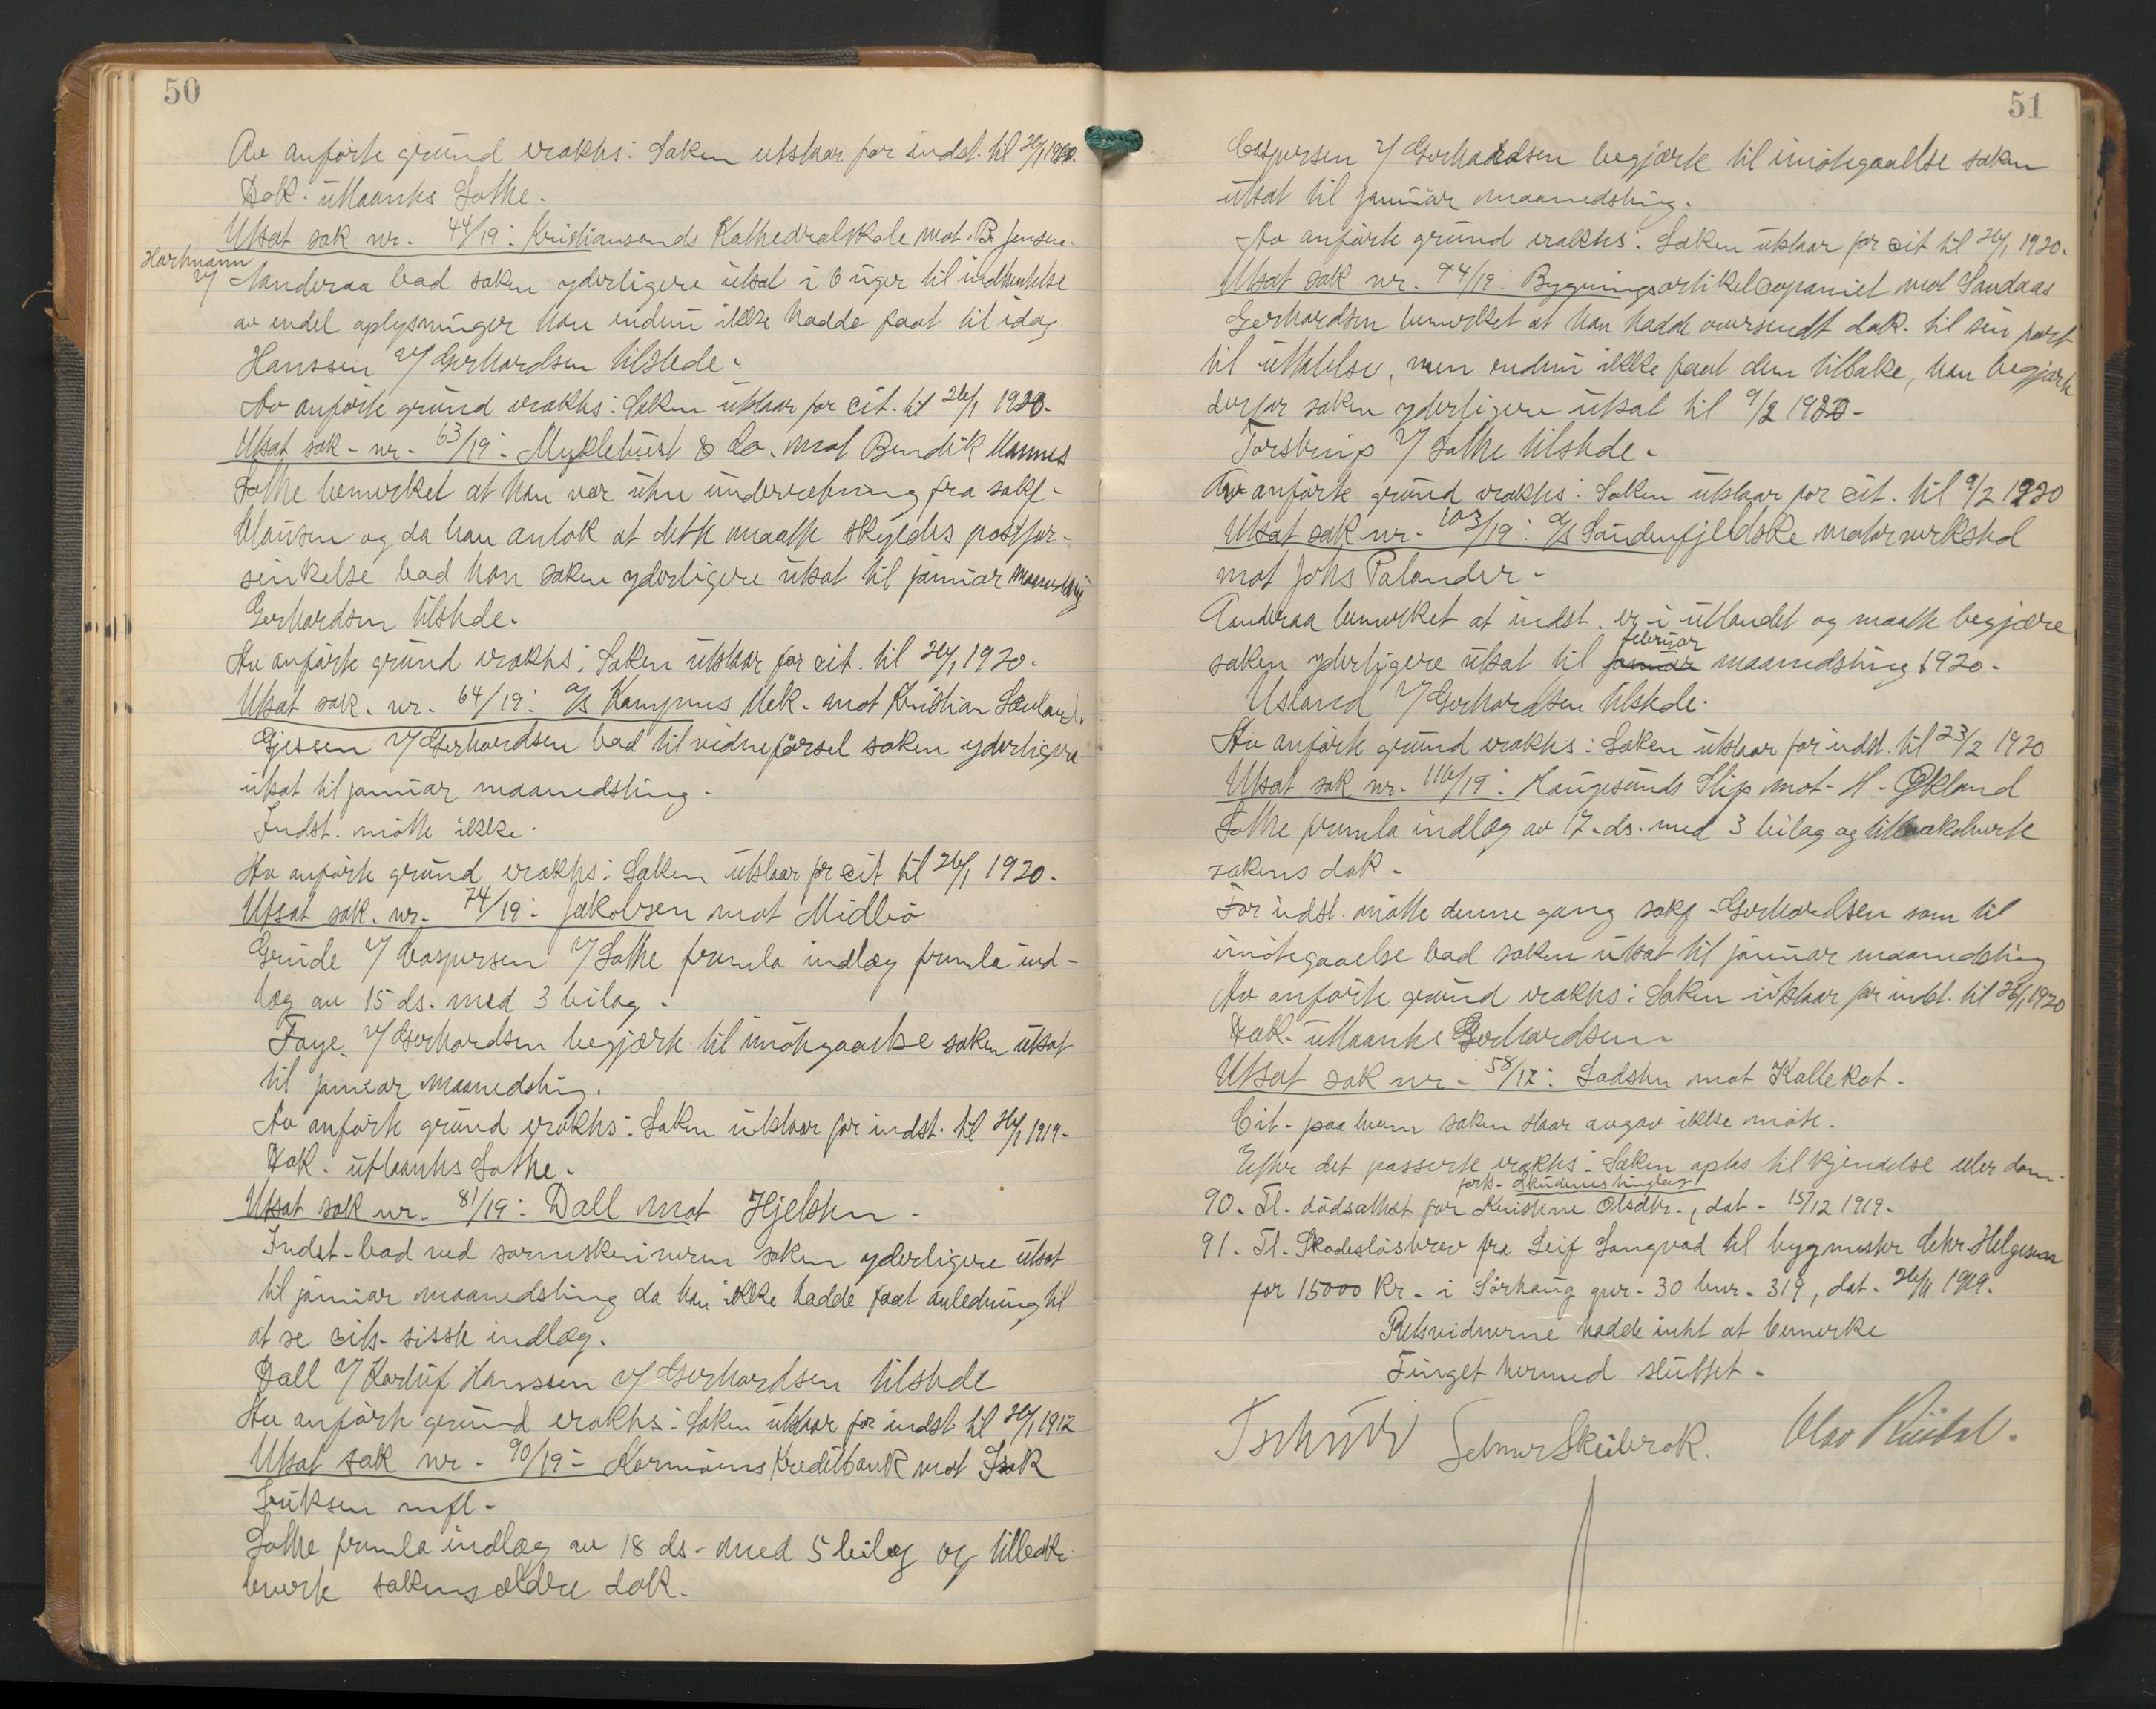 50
Av anførte grund eraktes: Saken utstaar for indst. til 26/1 1920.
Dok. utlaantes Lothe.
Utsat sak nr. 44/19: Kristiansands Kathedralskole mot B. Jensen.
Hartmann
v/ Aanderaa bad saken yderligere utsat i 6 uger til indhentelse
av endel oplysninger han endnu ikke hadde faat til idag.
Hanssen v/ Gerhardsen tilstede.
Av anførte grund eraktes: Saken utstaar for cit. til 26/1 1920.
Utsat sak nr. 63/19: Myklebust & Co. mot Bendik Mannes
Lothe bemerket at han var uten underretning fra sakf.
Clausen og da han antok at dette maatte skyldes postfor-
sinkelse bad han saken yderligere utsat til januar maanedsting
Gerhardsen tilstede.
Av anførte grund eraktes: Saken utstaar for cit. til 26/1 1920.
Utsat sak. nr. 64/19: A/S Kampens Mek. mot Kristian Sævland.
Gjessen v/ Gerhardsen bad til vidneførsel saken yderligere
utsat til januar maanedsting.
Indst. møtte ikke.
Av anførte grund eraktes: Saken utstaar for cit til 26/1 1920.
Utsat sak. nr. 74/19: Jakobsen mot Midbø
Grude v/ Caspersen v/ Lothe fremla indlæg fremla ind-
læg av 15 ds. med 3 bilag.
Faye v/ Gerhardsen begjærte til imøtegaaelse saken utsat
til januar maanedsting.
Av anførte grund eraktes: Saken utstaar for indst. til 26/1 1919.
Dok. utlaantes Lothe.
Utsat sak nr. 81/19: Dall mot Hjelsten.
Indst. bad ved sorenskriveren saken yderligere utsat
til januar maanedsting da han ikke hadde faat anledning til
at se cits. sisste indlæg.
Dall v/ Karluf Hanssen v/ Gerhardsen tilstede
Av anførte grund eraktes: Saken utstaar for indst til 26/1 1912
Utsat sak nr. 90/19: Karmøens Kreditbank mot Isak
Eriksen mfl.
Lothe fremla indlæg av 18 ds. med 5 bilag og tilbake-
leverte sakens ældre dok.
51
Caspersen v/ Gerhardsen begjærte til imøtegaaelse saken
utsat til januar maanedsting.
Av anførte grund eraktes: Saken utstaar for cit til 26/1 1920.
Utsat sak nr. 94/19: Bygningsartikelcopaniet mot Sandaas
Gerhardsen bemerket at han hadde oversendt dok. til sin part
til uttalelse, men endnu ikke faat dem tilbake, han begjærte
derfor saken yderligere utsat til 9/2 1920.
Torstrup v/ Lothe tilstede.
Av anførte grund eraktes: Saken utstaar for cit. til 9/2 1920
Utsat sak nr. 103/19: A/S Søndenfjeldske motorverksted
mot Johs Palander.
Aanderaa bemerket at indst. er i utlandet og maatte begjære
februar
saken yderligere utsat til januar maanedsting 1920.
Usland v/ Gerhardsen tilstede.
Av anførte grund eraktes: Saken utstaar for indst. til 23/2 1920
Utsat sak nr. 116/19: Haugesunds Slip mot H. Økland
Lothe fremla indlæg av 17. ds. med 3 bilag og tilbakeleverte
sakens dok.
For indst. møtte denne gang sakf. Gerhardsen som til
imøtegaaelse bad saken utsat til januar maanedsting
Av anførte grund eraktes: Saken utstaar for indst. til 26/1 1920
Dok. utlaantes Gerhardsen.
Utsat sak nr. 58/17: Ladsten mot Kallekot.
Cit. paa hvem saken staar avgav ikke møte.
Efter det passerte eraktes: Saken optas til kjendelse eller dom.
forts. Skudenes tinglag
90. Tl. dødsattest for Kristene Olsdtr., dat. 15/12 1919.
91. Tl. Skadesløsbrev fra Leif Langvad til bygmester Chr. Helgesen
for 15000 kr. i Sørhaug gnr. 30 bnr. 319, dat. 26/11 1919.
Retsvidnerne hadde intet at bemerke
Tinget hermed sluttet.
Selmer Skeibrok.